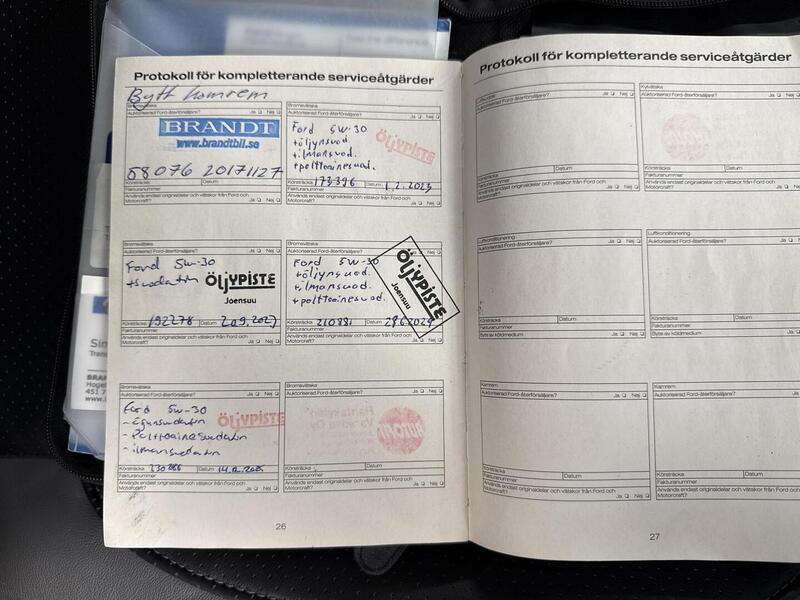 Protokoll för kompletterande serviceåtgärder
Bytt kamrem
Bromsvätska
Auktoriserad Ford-återförsäljare? Ja Nej
BRANDT
www.brandtbil.se
88076 20171127
Körsträcka Datum
Fakturanummer
Används endast originaldelar och vätskor från Ford och
Motorcraft? Ja Nej
Bromsvätska
Auktoriserad Ford-återförsäljare? Ja Nej
Ford 5W-30
+öljynsuod.
+ilmansuod.
+polttoainesuod.
ÖLJYPISTE
Körsträcka 173396 Datum 1.2.2023
Fakturanummer
Används endast originaldelar och vätskor från Ford och
Motorcraft? Ja Nej
Bromsvätska
Auktoriserad Ford-återförsäljare? Ja Nej
Ford 5W-30
+suodatin
ÖLJYPISTE
Joensuu
Körsträcka 192278 Datum 20.9.2023
Fakturanummer
Används endast originaldelar och vätskor från Ford och
Motorcraft? Ja Nej
Bromsvätska
Auktoriserad Ford-återförsäljare? Ja Nej
Ford 5W-30
+öljynsuod.
+ilmansuod.
+polttoainesuod.
ÖLJYPISTE
Joensuu
Körsträcka 210881 Datum
Fakturanummer
Används endast originaldelar och vätskor från Ford och
Motorcraft? Ja Nej
Bromsvätska
Auktoriserad Ford-återförsäljare? Ja Nej
Ford 5W-30
-Polttoainesuodatin
-ilmansuodatin
ÖLJYPISTE
Körsträcka Datum
Fakturanummer
Används endast originaldelar och vätskor från Ford och
Motorcraft? Ja Nej
Bromsvätska
Auktoriserad Ford-återförsäljare? Ja Nej
Körsträcka Datum
Fakturanummer
Används endast originaldelar och vätskor från Ford och
Motorcraft? Ja Nej
26
Protokoll för kompletterande serviceåtgärder
Auktoriserad Ford-återförsäljare? Ja Nej
Körsträcka Datum
Fakturanummer
Används endast originaldelar och vätskor från Ford och
Motorcraft? Ja Nej
Kylvätska
Auktoriserad Ford-återförsäljare? Ja Nej
Körsträcka Datum
Fakturanummer
Används endast originaldelar och vätskor från Ford och
Motorcraft?
Luftkonditionering
Auktoriserad Ford-återförsäljare? Ja Nej
Körsträcka Datum
Fakturanummer
Byte av köldmedium Ja Nej
Luftkonditionering
Auktoriserad Ford-återförsäljare?
Körsträcka Datum
Fakturanummer
Byte av köldmedium
Kamrem
Auktoriserad Ford-återförsäljare? Ja Nej
Körsträcka Datum
Fakturanummer
Används endast originaldelar och vätskor från Ford och
Motorcraft? Ja Nej
Kamrem
Auktoriserad Ford-återförsäljare?
Körsträcka Datum
Fakturanummer
Används endast originaldelar och vätskor från Ford och
Motorcraft?
27